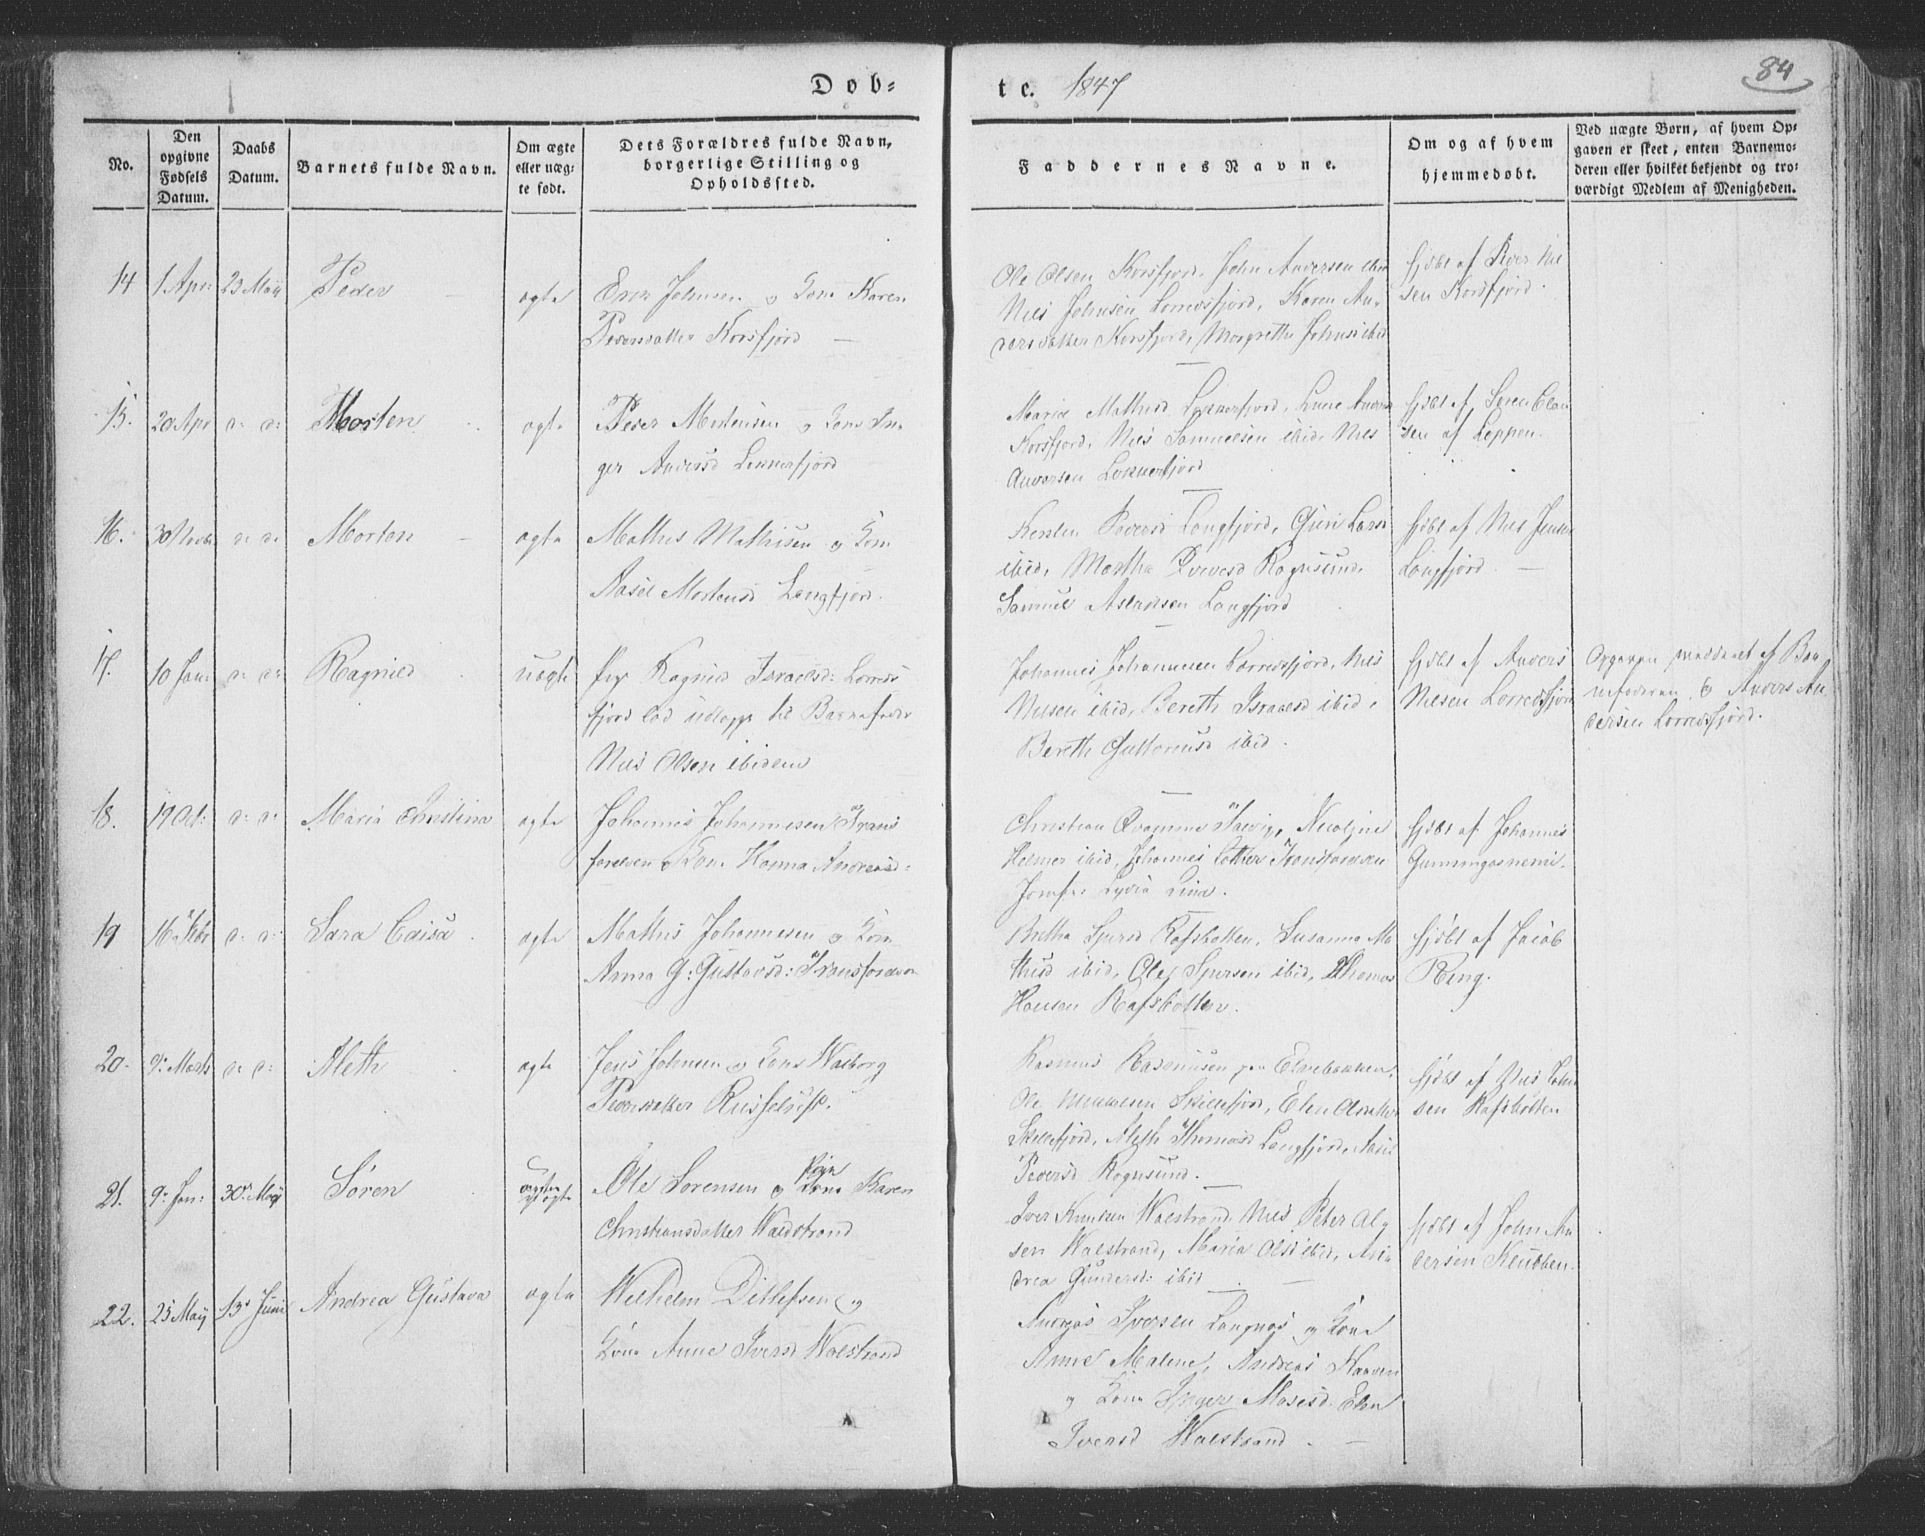 Døb-
te. 1847
84
No.
Den opgivne Fødsels Datum.
Daabs Datum.
Barnets fulde Navn.
Om ægte eller uæg-te født.
Dets Forældres fulde Navn, borgerlige Stilling og Opholdssted.
Faddernes Navne.
Om og af hvem hjemmedøbt.
Ved uægte Børn, af hvem Op-gaven er skeet, enten Barnemo-deren eller hvilket bekjendt og tro-værdigt Medlem af Menigheden.
14 1 Apr: 23 Maij Peder ægte
Johnsen og Kone Karen
Pedersdatter Korsfjord
Ole Olsen Korsfjord, John Andersen ibid
Nils Johnsen Korsfjord, Karen An-
dersdatter Korsfjord, Margrethe Johnsd ibid
hjdbt af Iver Nil
sen Korsfjord.
15. 20 Apr d: d: Morten ægte
Peder Mortensen og Kone In-
ger Andersd
Maria Mathisd
Korsfjord, Nils Samuelsen ibid, Nils
Andersen
hjdbt af Søren Clau
sen af Leppen.
16. d: d: Morten ægte
Mathis Mathisen og Kone
Mortensd Langfjord.
Kersten Pedersd Langfjord, Guri Larsd
ibid, Martha Rognsund,
Samuel Aslaksen Langfjord
hjdbt af Nils Jensen
Langfjord
17. 10 Jan: d: d: Ragnild uægte
Pige Ragnild Israelsd: Lerreds
fjord lod udlægge til Barnefader
Nils Olsen ibidem
Johannes Johannesen Lerredsfjord, Nils
Nilsen ibid, Bereth Israelsd ibid,
Bereth Guttormsd ibid.
hjdbt af Anders
Nilsen Lerredsfjord
Opgaven meddelt af Bar
nefaderen & Anders An
dersen Lerredsfjord.
18. 19 Oct: d: d: Maria Christina ægte
Johannes Johannesen Trans
fordelven og Kone Hanna Andreasd:
Christian Qvamme Talvig, Nicoline
Helmer ibid, Johannes Transfordelven
Jomfr: Lydia
hjdbt af Johannes
19 16 Febr d: d: Sara Caisa ægte
Mathis Johannesen og Kone
Anna G: Gustavsd: Transfordelven
Bretha Sjursd Rafsbotten, Susanna Ma
thisd ibid, Ole Sjursen ibid, Thomas
Hansen Rafsbotten.
hjdbt af Jacob
Ring.
20. 9: Marts d: d: Aleth ægte
Jens Johnsen og Kone Walborg
Pedersdatter
Rasmus Rasmusen paa Elvebakken,
Ole Mikkelsen Skillefjord, Elen
Skillefjord, Aleth Thomasd Langfjord,
Pedersd Rognsund.
hjdbt af Nils John
sen Rafsbotten
21. 9: Jan: 30: Maij Søren uægte
Ole Sørensen og Pigen Karen
Christiansdatter Walstrand
Iver Knudsen Walstrand, Nils Peter Ol-
sen Walstrand, Maria Olsd ibid, An-
drea Gundersd: ibid
hjdbt af John An
dersen Klubben.
22. 25 Maij 13: Juni Andrea Gustava ægte
Wilhelm Ditlefsen og
Kone Anne Iversd Walstrand
Andreas Iversen Langnæs og Kone
Anne Malene, Andreas
og Kone Inger Mosesd. Elen
Iversd Walstrand.